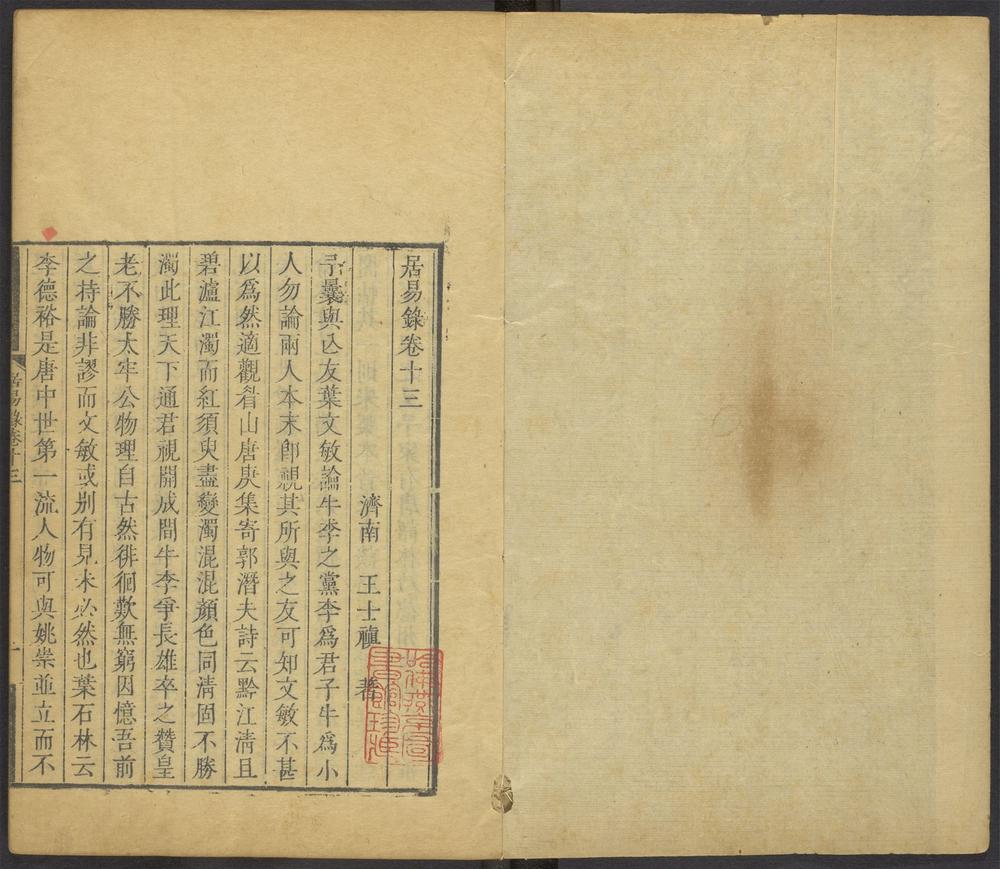 居易錄卷十三
濟南 王士禛 著
予曩與亾友葉文敏論牛李之黨李爲君子牛爲小
人勿論兩人本末卽覶其所與之友可知文敏不甚
以爲然適觀眉山唐庚集寄郭潛夫詩云黔江淸且
碧瀘江濁而紅須臾盡變濁混混顏色同淸固不勝
濁此理天下通君視開成間牛李爭長雄卒之贊皇
老不勝太牢公物理自古然徘徊歎無窮因憶吾前
之持論非謬而文敏或別有見未必然也葉石林云
李德裕是唐中世第一流人物可與姚崇並立而不
居易錄卷十三
一